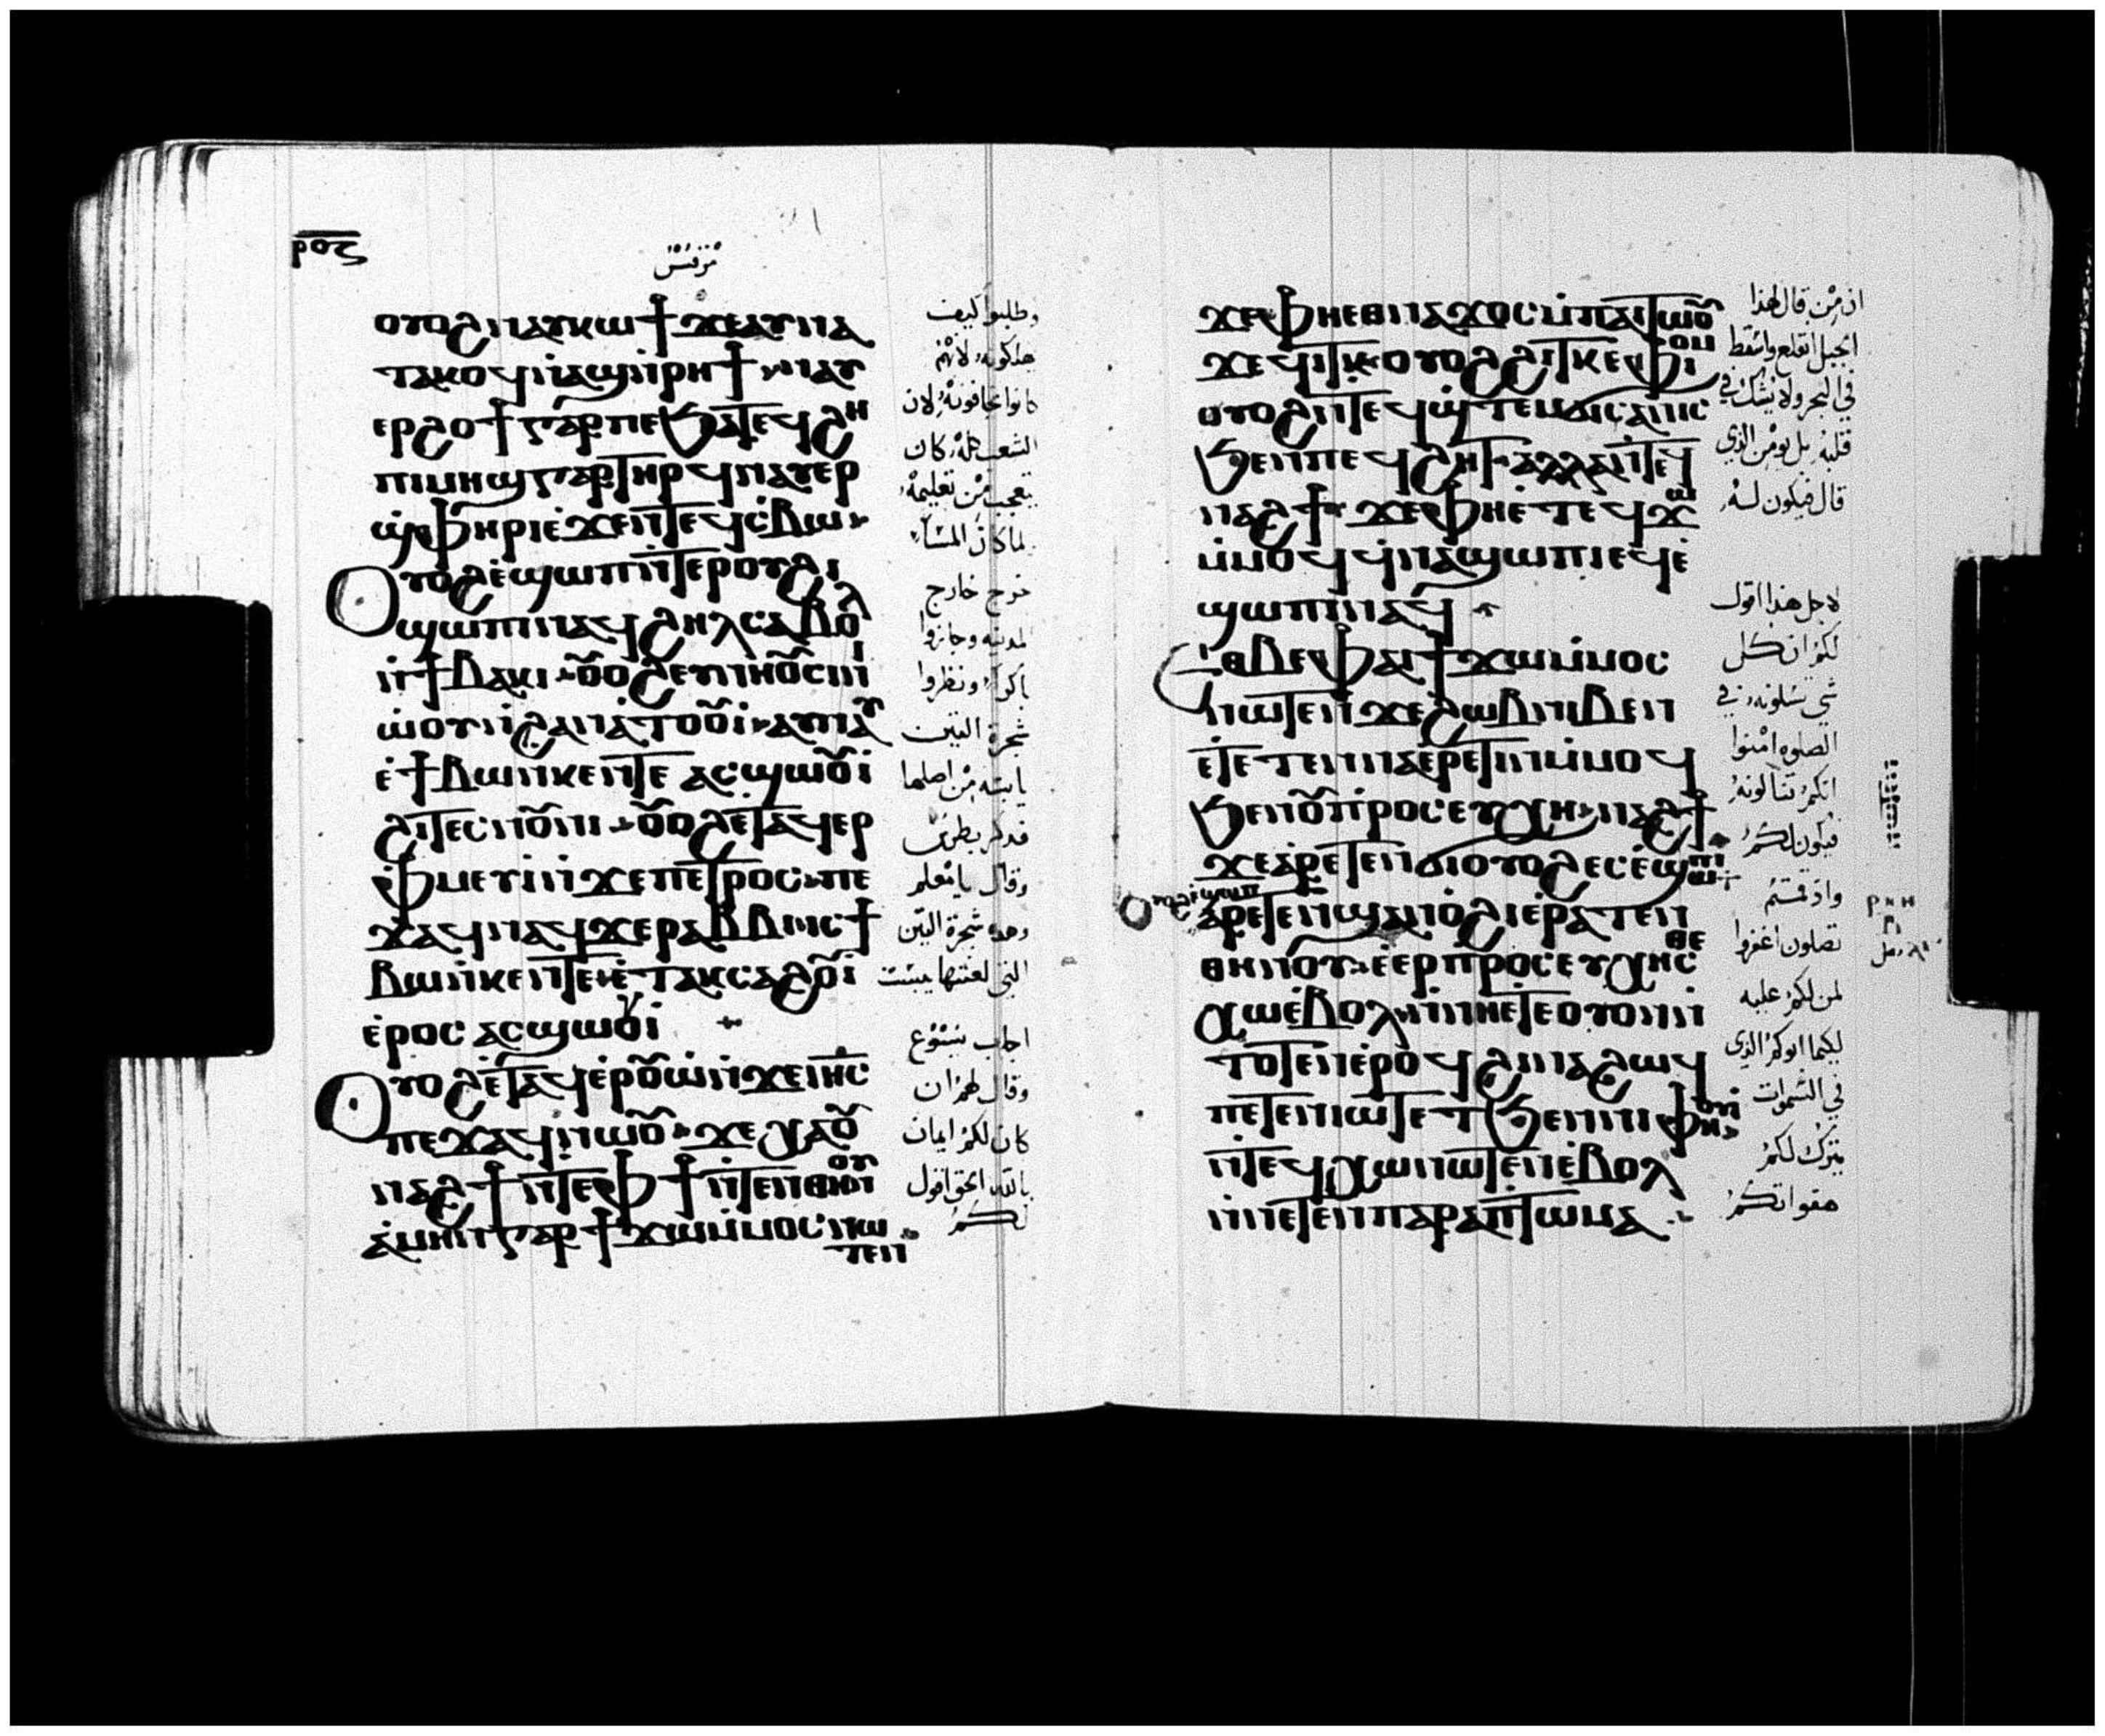 ⲣⲟⲍ
مرقس
ⲟⲩⲟϩ ⲛⲁⲩⲕⲱϯ ϫⲉ ⲁⲩⲛⲁ
ⲧⲁⲕⲟϥ ⲛ̀ⲁϣ ⲛ̀ⲣⲏϯ ⲛⲁⲩ
ⲉⲣϩⲟϯ ⲅⲁⲣ ⲡⲉ ϧⲁⲧⲉϥϩⲏ
ⲡⲓⲙⲏϣ ⲅⲁⲣ ⲧⲏⲣϥ ⲛⲁⲩⲉⲣ
ϣ̀ⲫⲏⲣⲓ ⲉ̀ϫⲉⲛ ⲧⲉϥⲥ̀ⲃⲱ
ⲟⲩⲟϩ ⲉ̀ϣⲱⲡ ⲛ̀ⲧⲉ ⲣⲟⲩϩⲓ
ϣⲱⲡⲓ ⲛⲁϥϩⲏⲗ ⲥⲁⲃⲟⲗ
ⲛ̀ϯⲃⲁⲕⲓ ⲟⲩⲟϩ ⲉⲩⲥⲓⲛⲓ
ⲙ̀ⲙⲱⲟⲩ ⲛ̀ϩⲁⲛⲁⲧⲟⲟⲩⲓ ⲁⲩⲛⲁⲩ
ⲉ̀ϯⲃⲱ ⲛ̀ⲕⲉⲛⲧⲉ ⲁⲥϣⲱⲟⲩⲓ
ϩⲓ ⲧⲉⲥⲛⲟⲩⲛⲓ ⲟⲩⲟϩ ⲉⲧⲁϥⲉⲣ
ⲫⲙⲉⲩⲓ ⲛ̀ϫⲉ ⲡⲉⲧⲣⲟⲥ ⲡⲉ
ϫⲁϥ ⲛⲁϥ ϫⲉ ⲣⲁⲃⲃⲓ ⲓⲥ ϯ
ⲃⲱ ⲛ̀ⲕⲉⲛⲧⲉ ⲉ̀ⲧⲁⲕⲥⲁϩⲟⲩⲓ
ⲉ̀ⲣⲟⲥ ⲁⲥϣⲱⲟⲩⲓ
ⲟⲩⲟϩ ⲉ̀ⲧⲁϥⲉ̀ⲣⲟⲩⲱ̀ ⲛ̀ϫⲉ ⲓⲏⲥ
ⲡⲉϫⲁϥ ⲛⲱⲟⲩ ϫⲉ ⲭⲁⲟⲩ
ⲛⲁϩϯ ⲛ̀ⲧⲉ ⲫϯ ϧⲉⲛ ⲑⲏⲛⲟⲩ
ⲁ̀ⲙⲏⲛ ⲅⲁⲣ ϯϫⲱ ⲙ̀ⲙⲟⲥ ⲛⲱ
ⲧⲉⲛ
وطلبوا كيف
يهلكونه لانهم
كانوا يخافونه لان
الشعب كله كان
يتعجب من تعليمه
لما كان المساء
خرج خارج
المدينه وجازوا
باكرا ونظروا
شجرة التين
يابسه من اصلها
فذكر بطرس
وقال يا معلم
وهذه شجرة التين
التي لعنتها يبست
اجاب يسوع
وقال لهم ان
كان لكم ايمان
بالله الحق اقول
لكم
ϫⲉ ⲫⲏ ⲉⲑⲛⲁϫⲟⲥ ⲙ̀ⲡⲁⲓⲧⲱⲟⲩ
ϫⲉ ϥⲓⲧⲕ ⲟⲩⲟϩ ϩⲓⲧⲕ ⲉ̀ⲫⲓⲟⲙ
ⲟⲩⲟϩ ⲛ̀ⲧⲉϥϣ̀ⲧⲉⲙϭⲓⲥⲁⲛⲓⲥ
ϧⲉⲛ ⲡⲉϥϩⲏⲧ ⲁⲗⲗⲁ ⲛ̀ⲧⲉϥ
ⲛⲁϩϯ ϫⲉ ⲫⲏ ⲉ̀ⲧⲉϥϫⲱ
ⲙ̀ⲙⲟϥ ϥ̀ⲛⲁϣⲱⲡⲓ ⲉϥⲉ̀
ϣⲱⲡⲓ ⲛⲁϥ
ⲉⲑⲃⲉ ⲫⲁⲓ ϯϫⲱ ⲙ̀ⲙⲟⲥ
ⲛⲱⲧⲉⲛ ϫⲉ ϩⲱⲃ ⲛⲓⲃⲉⲛ
ⲉⲧⲉⲧⲉⲛⲛⲁⲉⲣⲉⲧⲓⲛ ⲙ̀ⲙⲟϥ
ϧⲉⲛ ⲟⲩⲡⲣⲟⲥⲉⲩⲭⲏ ⲛⲁϩϯ
ϫⲉ ⲁⲣⲉⲧⲉⲛϭⲓ ⲟⲩⲟϩ ⲉⲥⲉ̀ϣⲱⲡⲓ
ⲟⲩⲟϩ ⲉ̀ϣⲱⲡ
ⲁⲣⲉⲧⲉⲛϣⲁⲛⲟϩⲓ ⲉ̀ⲣⲁⲧⲉⲛ
ⲑⲏⲛⲟⲩ ⲉ̀ⲉⲣⲡⲣⲟⲥⲉⲩⲭⲉⲥⲑⲉ
ⲭⲱ ⲉ̀ⲃⲟⲗ ⲛ̀ⲛⲏ ⲉⲧⲉ ⲟⲩⲟⲛ
ⲧⲟⲧⲉⲛ ⲉ̀ⲣⲟϥ ϩⲓⲛⲁ ϩⲱϥ
ⲡⲉⲧⲉⲛⲓⲱⲧ ⲉⲧ ϧⲉⲛ ⲛⲓⲫⲏⲟⲩⲓ
ⲛ̀ⲧⲉϥⲭⲱ ⲛⲱⲧⲉⲛ ⲉ̀ⲃⲟⲗ
ⲛ̀ⲛⲉⲧⲉⲛⲡⲁⲣⲁⲡⲧⲱⲙⲁ
ان من قال لهذا
الجبل انقلع واسقط
في البحر ولا يشك في
قلبه بل يومن الذي
قال فيكون له
لاجل هذا اقول
لكم ان كل
شي تسلونه في
الصلوه امنوا
انكم تنالونه
فيكون لكم
واذ قمتم
تصلون اغفروا
لمن لكم عليه
لكيما ابوكم الذي
في السموات
يترك لكم
هفواتكم